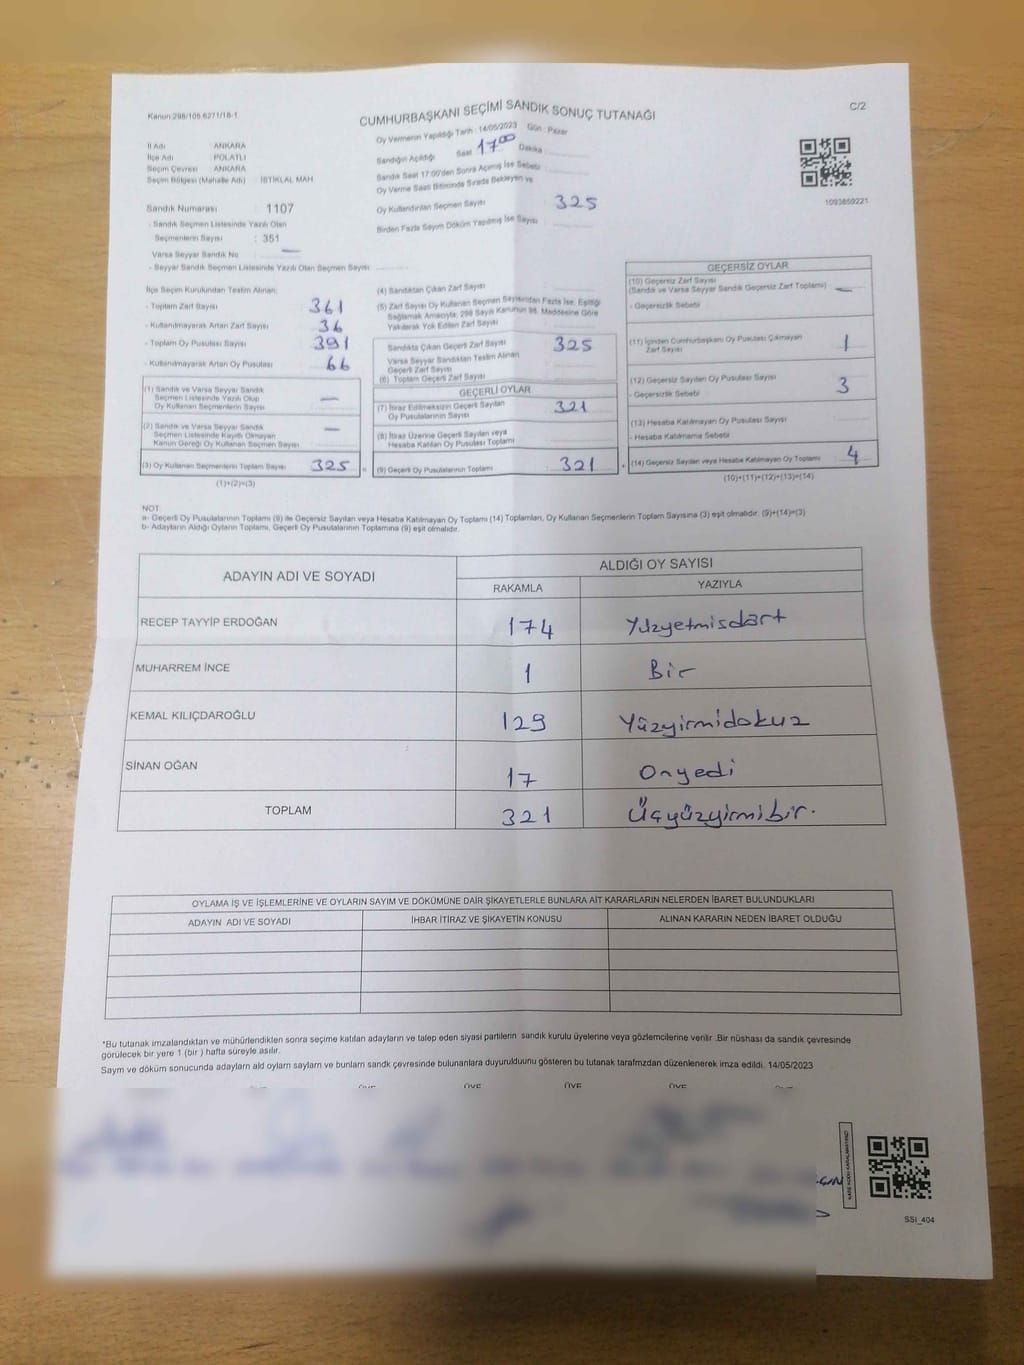 Kanun:298/105.6271/18-1
CUMHURBAŞKANI SEÇİMİ SANDIK SONUÇ TUTANAĞI
C/2
İl Adı ANKARA
İlçe Adı POLATLI
Seçim Çevresi ANKARA
Seçim Bölgesi (Mahalle Adı) İSTİKLAL MAH
Oy Vermenin Yapıldığı Tarih : 14/05/2023 Gün : Pazar
Sandığın Açıldığı Saat 17:00 Dakika
Sandık Saat 17:00'den Sonra Açılmış İse Sebebi
Oy Verme Saati Bitiminde Sırada Bekleyen ve
Oy Kullandırılan Seçmen Sayısı 325
Birden Fazla Sayım Döküm Yapılmış İse Sayısı
1093859221
Sandık Numarası : 1107
- Sandık Seçmen Listesinde Yazılı Olan
Seçmenlerin Sayısı : 351
Varsa Seyyar Sandık No —
- Seyyar Sandık Seçmen Listesinde Yazılı Olan Seçmen Sayısı
İlçe Seçim Kurulundan Teslim Alınan:
- Toplam Zarf Sayısı 361
- Kullanılmayarak Artan Zarf Sayısı 36
- Toplam Oy Pusulası Sayısı 391
- Kullanılmayarak Artan Oy Pusulası 66
(1) Sandık ve Varsa Seyyar Sandık
Seçmen Listesinde Yazılı Olup
Oy Kullanan Seçmenlerin Sayısı —
(2) Sandık ve Varsa Seyyar Sandık
Seçmen Listesinde Kayıtlı Olmayan
Kanun Gereği Oy Kullanan Seçmen Sayısı —
(3) Oy Kullanan Seçmenlerin Toplam Sayısı 325 =
(1)+(2)=(3)
(4) Sandıktan Çıkan Zarf Sayısı
(5) Zarf Sayısı Oy Kullanan Seçmen Sayısından Fazla İse, Eşitliği
Sağlamak Amacıyla; 298 Sayılı Kanunun 98. Maddesine Göre
Yakılarak Yok Edilen Zarf Sayısı
Sandıkta Çıkan Geçerli Zarf Sayısı 325
Varsa Seyyar Sandıktan Teslim Alınan
Geçerli Zarf Sayısı
(6) Toplam Geçerli Zarf Sayısı
GEÇERLİ OYLAR
(7) İtiraz Edilmeksizin Geçerli Sayılan
Oy Pusulalarının Sayısı 321
(8) İtiraz Üzerine Geçerli Sayılan veya
Hesaba Katılan Oy Pusulası Toplamı
(9) Geçerli Oy Pusulalarının Toplamı 321 +
GEÇERSİZ OYLAR
(10) Geçersiz Zarf Sayısı
(Sandık ve Varsa Seyyar Sandık Geçersiz Zarf Toplamı) —
- Geçersizlik Sebebi
(11) İçinden Cumhurbaşkanı Oy Pusulası Çıkmayan
Zarf Sayısı 1
(12) Geçersiz Sayılan Oy Pusulası Sayısı 3
- Geçersizlik Sebebi
(13) Hesaba Katılmayan Oy Pusulası Sayısı
- Hesaba Katılmama Sebebi
(14) Geçersiz Sayılan veya Hesaba Katılmayan Oy Toplamı 4
(10)+(11)+(12)+(13)=(14)
NOT:
a- Geçerli Oy Pusulalarının Toplamı (9) ile Geçersiz Sayılan veya Hesaba Katılmayan Oy Toplamı (14) Toplamları, Oy Kullanan Seçmenlerin Toplam Sayısına (3) eşit olmalıdır. (9)+(14)=(3)
b- Adayların Aldığı Oyların Toplamı, Geçerli Oy Pusulalarının Toplamına (9) eşit olmalıdır.
ADAYIN ADI VE SOYADI ALDIĞI OY SAYISI
RAKAMLA YAZIYLA
RECEP TAYYİP ERDOĞAN 174 Yüzyetmisdört
MUHARREM İNCE 1 Bir
KEMAL KILIÇDAROĞLU 129 Yüzyirmidokuz
SİNAN OĞAN 17 Onyedi
TOPLAM 321 Üçyüzyirmibir.
OYLAMA İŞ VE İŞLEMLERİNE VE OYLARIN SAYIM VE DÖKÜMÜNE DAİR ŞİKAYETLERLE BUNLARA AİT KARARLARIN NELERDEN İBARET BULUNDUKLARI
ADAYIN ADI VE SOYADI İHBAR İTİRAZ VE ŞİKAYETİN KONUSU ALINAN KARARIN NEDEN İBARET OLDUĞU
*Bu tutanak imzalandıktan ve mühürlendikten sonra seçime katılan adayların ve talep eden siyasi partilerin sandık kurulu üyelerine veya gözlemcilerine verilir .Bir nüshası da sandık çevresinde
görülecek bir yere 1 (bir ) hafta süreyle asılır.
Saym ve döküm sonucunda adaylarn ald oylarn saylarn ve bunlarn sandk çevresinde bulunanlara duyurulduunu gösteren bu tutanak tarafmzdan düzenlenerek imza edildi. 14/05/2023
ÜYE ÜYE ÜYE ÜYE
SSİ_404